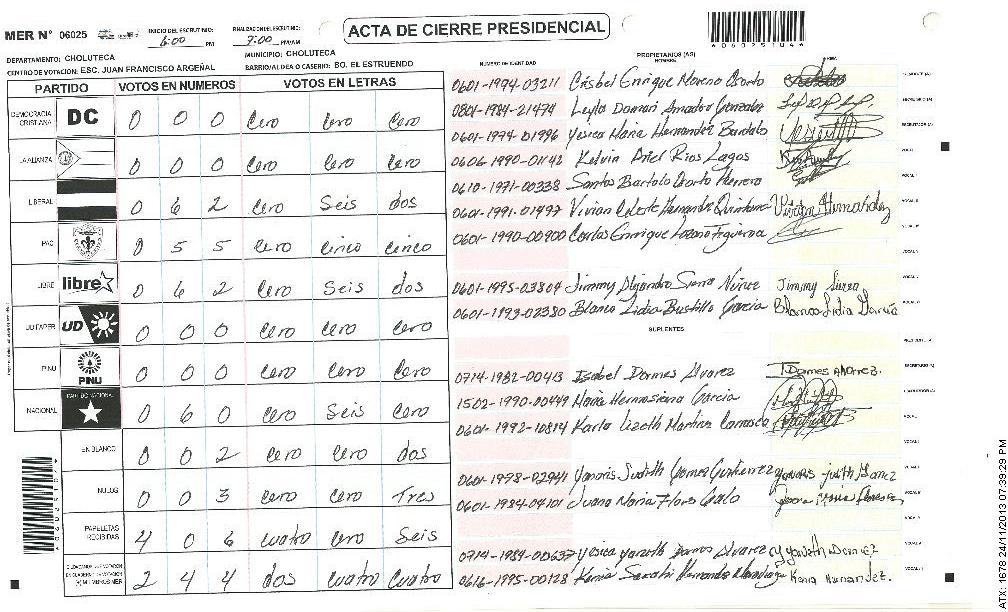 MER N° 06025
INICIO DEL ESCRUTINIO: 6:00 PM
FINALIZACION DEL ESCRUTINIO: 7:00 PM/AM
ACTA DE CIERRE PRESIDENCIAL
DEPARTAMENTO: CHOLUTECA
MUNICIPIO: CHOLUTECA
CENTRO DE VOTACION: ESC. JUAN FRANCISCO ARGEÑAL
BARRIO/ALDEA O CASERIO: BO. EL ESTRUENDO
PARTIDO VOTOS EN NUMEROS VOTOS EN LETRAS
DEMOCRACIA CRISTIANA DC 0 0 0 Cero Cero Cero
LA ALIANZA 0 0 0 Cero Cero Cero
LIBERAL 0 6 2 Cero Seis dos
PAC 0 5 5 Cero Cinco Cinco
LIBRE libre 0 6 2 Cero Seis dos
UD FAPER UD 0 0 0 Cero Cero Cero
PINU PINU 0 0 0 Cero Cero Cero
NACIONAL PARTIDO NACIONAL 0 6 0 Cero Seis Cero
EN BLANCO 0 0 2 Cero Cero dos
NULOS 0 0 3 Cero Cero Tres
PAPELETAS RECIBIDAS 4 0 6 Cuatro Cero Seis
2 4 4 dos Cuatro Cuatro
NUMERO DE IDENTIDAD
PROPIETARIOS (AS)
NOMBRE
FIRMA
0601-1994-03211 Crisbel Enrique Moreno Osorto
0801-1984-21474 Leyla Damari Amador Gonzales
0601-1974-01996 Yesica Maria Hernandez Bardalo
0606-1990-01142 Kelvin Ariel Rios Lagos
0610-1971-00338 Santos Bartolo Osorto Herrera
0601-1991-01497 Vivian Celeste Hernandez Quintana Vivian Hernandez
0601-1990-00900 Carlos Enrique Lozano Figueroa
0601-1995-03804 Jimmy Alejandro Sierra Núñez Jimmy Sierra
0601-1993-02380 Blanca Lidia Bustillo Garcia Blanca Lidia García
SUPLENTES
0714-1982-00413 Isabel Dormes Alvarez I Dormes Alvarez.
1502-1990-00449 Maria Hermosirena Garcia
0601-1992-10814 Karla Lizeth Martinez Carrasco
0601-1978-02941 Yanoris Judith Gomez Gutierrez
0601-1984-04101 Juana Maria Flores
0714-1984-00637 Yesica Yaneth Dormes Alvarez
0616-1995-00128 Kenia Sarahi Hernandez Kenia Hernandez.
ATX: 1678 24/11/2013 07:39:29 PM